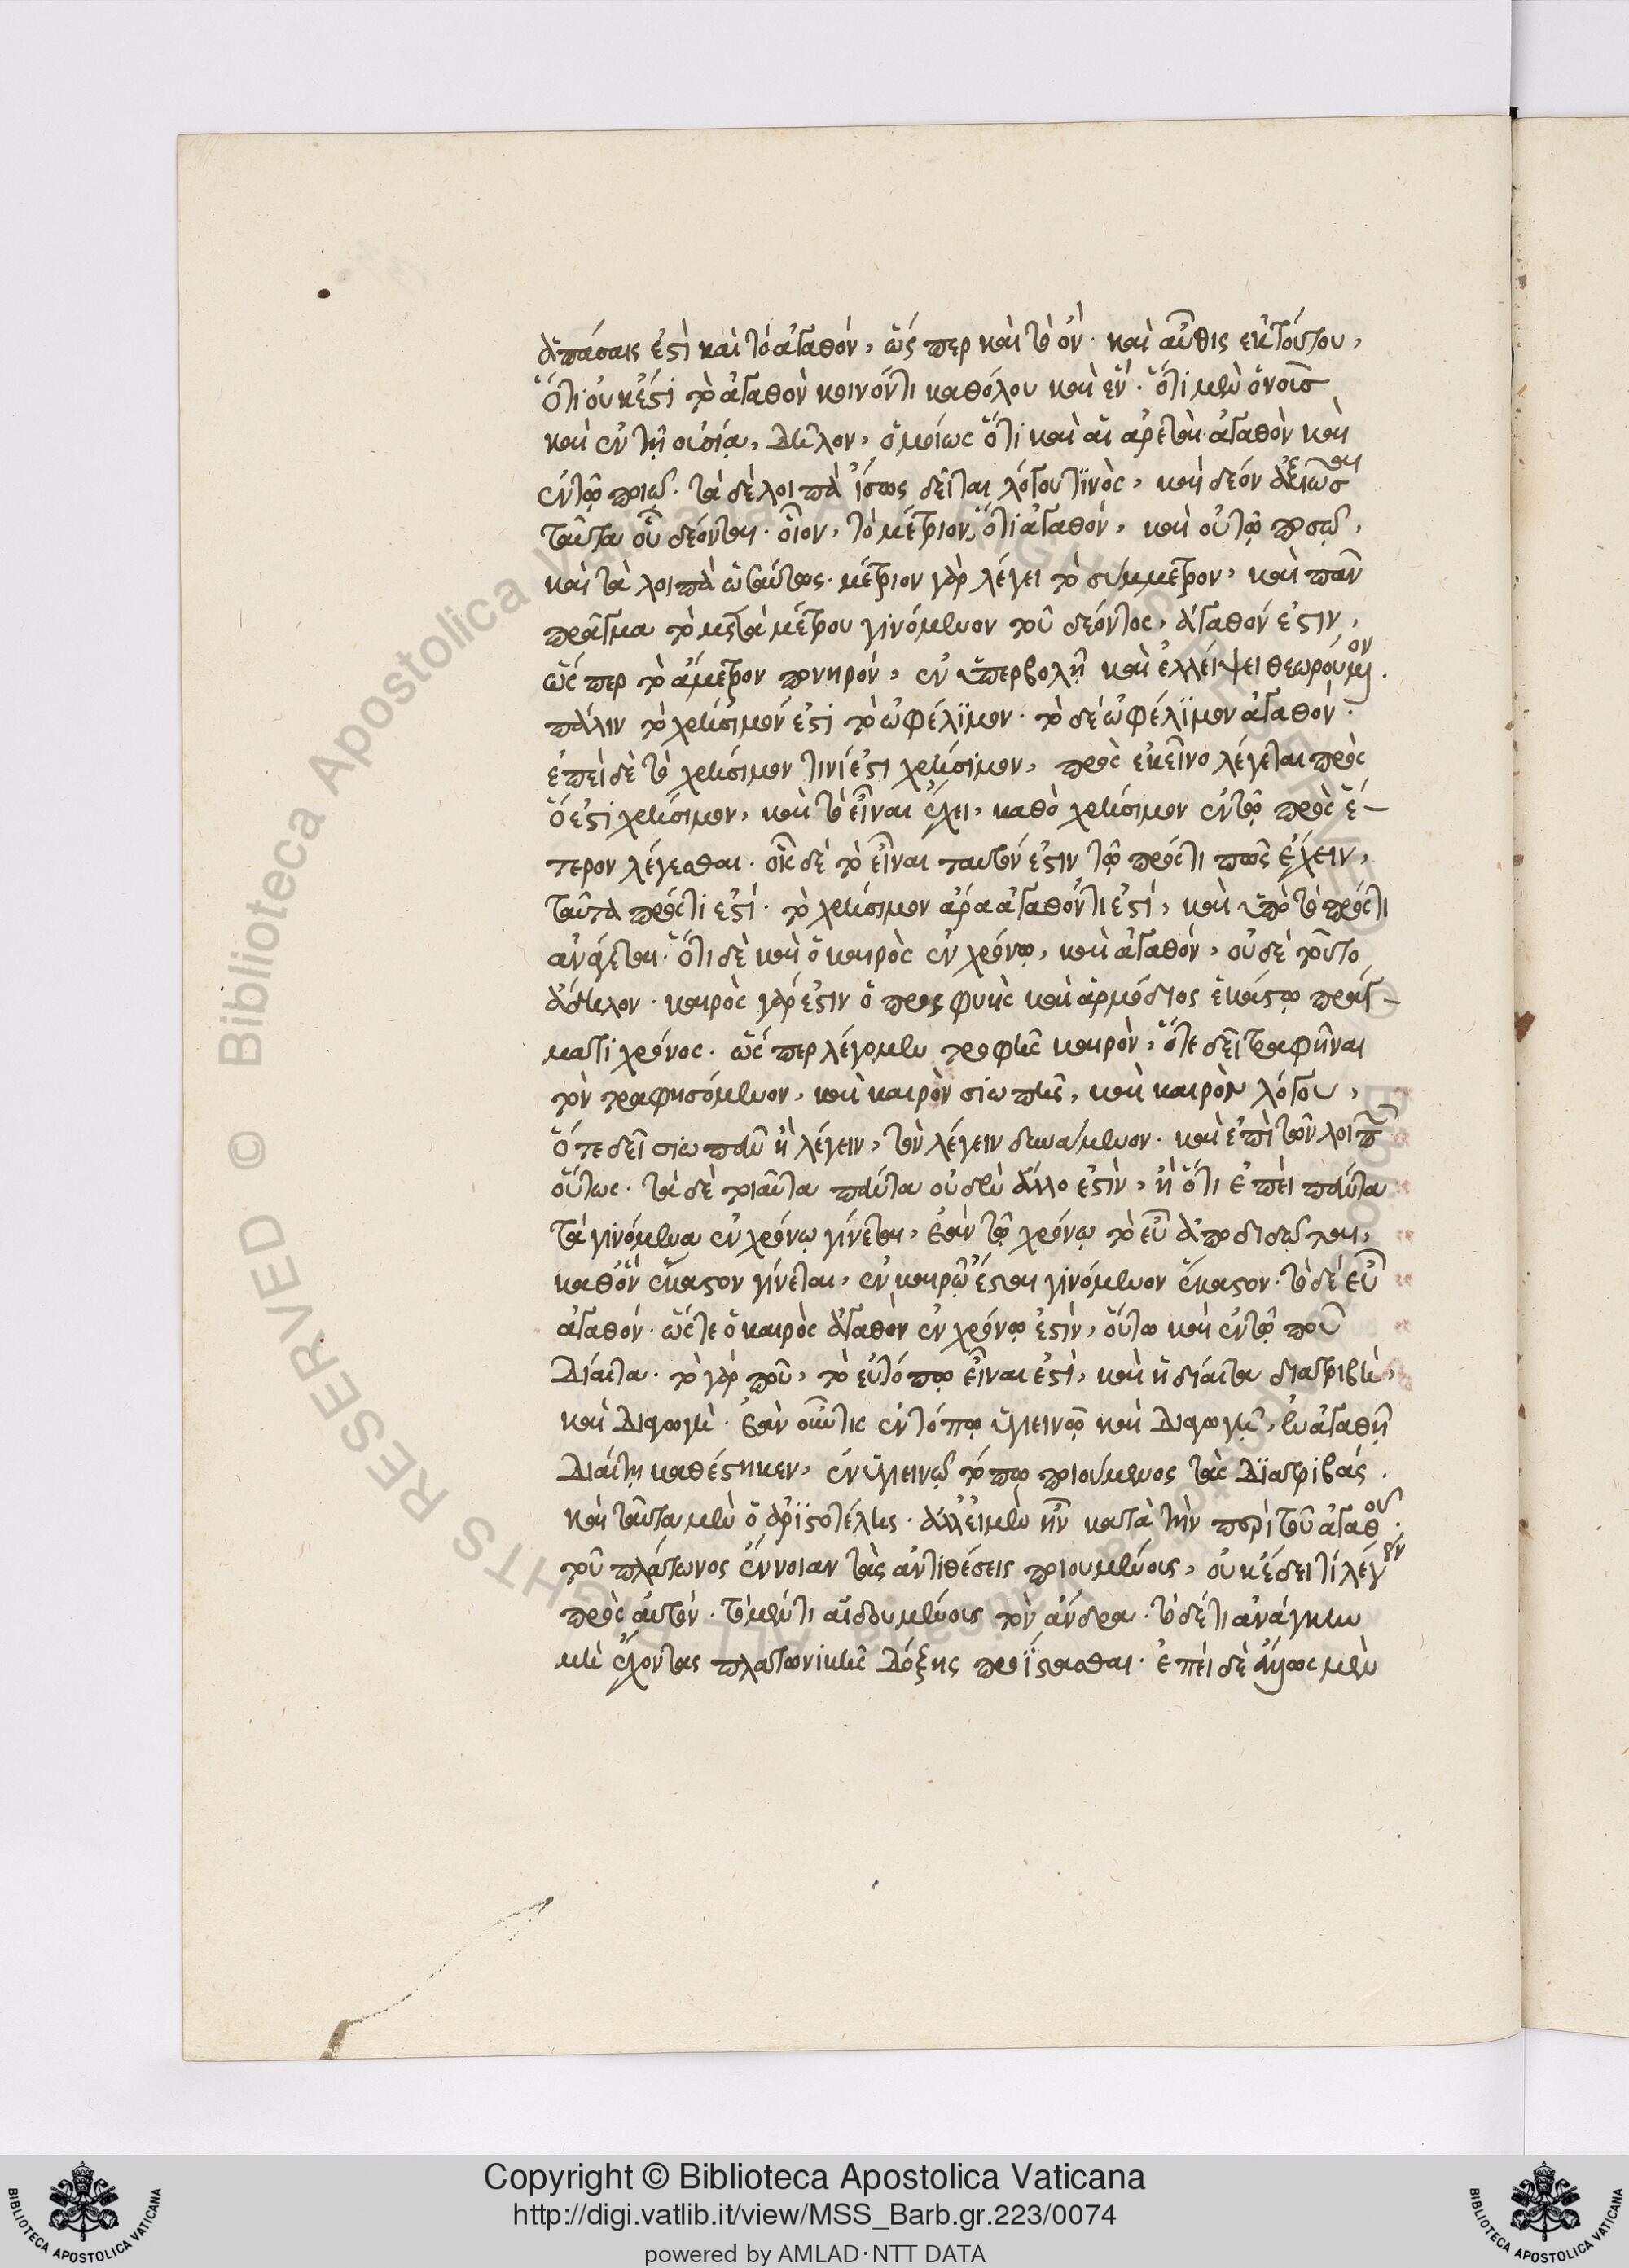 ἁπάσαις ἐστὶ καὶ τὸ ἀγαθόν, ὥς περ καὶ τὸ ὄν. καὶ αὖθις ἐκ τούτου,
ὅτι οὐκ ἐστὶ τὸ ἀγαθὸν κοινόν τι καθόλου καὶ ἕν. ὅτι μὲν ὁ νοῦς
καὶ ἐν τῇ οὐσίᾳ, δῆλον, ὁμοίως ὅτι καὶ αἱ ἀρεταὶ ἀγαθὸν καὶ
ἐν τῷ ποιῷ. τὰ δὲ λοιπὰ ἴσως δεῖται λόγου τινὸς, καὶ δεόν
ταῦτα οὖ δέονται. οἷον, τὸ μέτριον, ὅτι ἀγαθόν, καὶ οὐ τῷ ποσῷ,
καὶ τὰ λοιπὰ ὡσαύτως. μέτριον γὰρ λέγει τὸ σύμμετρον, καὶ πᾶν
πρᾶγμα τὸ μετὰ μέτρου γινόμενον τοῦ δέοντος, ἀγαθόν ἐστιν,
ὥς περ τὸ ἄμετρον πονηρόν, ἐν ὑπερβολῇ καὶ ἐλλείψει θεωρούμενον.
πάλιν τὸ χρήσιμόν ἐστὶ τὸ ὠφέλϊμον. τὸ δὲ ὠφέλϊμον ἀγαθόν.
ἐπεὶ δὲ τὸ χρήσιμον τινί ἐστι χρήσιμον, πρὸς ἐκεῖνο λέγεται πρὸς
ὅ ἐστι χρήσιμον, καὶ τὸ εἶναι ἔχει, καθὸ χρήσιμον ἐν τῷ πρὸς ἕ-
τερον λέγεσθαι. οἷς δὲ τὸ εἶναι ταυτόν ἐστιν τῷ πρός τι πῶς ἔχειν,
ταῦτα πρός τι ἐστί. τὸ χρήσιμον ἄρα ἀγαθόν τι ἐστί, καὶ ὑπὸ τὸ πρός τι
ἀνάγεται. ὅτι δὲ καὶ ὁ καιρὸς ἐν χρόνῳ, καὶ ἀγαθόν, οὐδὲ τοῦτο
ἄδηλον. καιρὸς γάρ ἐστιν ὁ προσφυὴς καὶ ἁρμόδιος ἑκάστῳ πράγ-
ματι χρόνος. ὥς περ λέγομεν τροφῆς καιρὸν, ὅτε δεῖ τραφῆναι
τὸν τραφησόμενον, καὶ καιρὸν σιωπῆς, καὶ καιρὸν λόγου,
ὅτε δεῖ σιωπᾶν ἢ λέγειν, τὸν λέγειν δυνάμενον. καὶ ἐπὶ τῶν λοιπῶν
οὕτως. τὰ δὲ τοιαῦτα πάντα οὐδὲν ἄλλο ἐστὶν, ἢ ὅτι ἐπεὶ πάντα
τὰ γινόμενα ἐν χρόνῳ γίνεται, ἐὰν τῷ χρόνῳ τὸ εὖ ἀποδιδῶται,
καθ' ὃν ἕκαστον γίνεται, ἐν καιρῷ ἔσται γινόμενον ἕκαστον. τὸ δὲ εὖ
ἀγαθόν. ὥστε ὁ καιρὸς ἀγαθὸν ἐν χρόνῳ ἐστὶν, οὕτω καὶ ἐν τῷ ποῦ
δίαιτα. τὸ γὰρ ποῦ, τὸ ἐν τόπῳ εἶναι ἐστὶ, καὶ ἡ δίαιτα διατριβὴ,
καὶ διαγωγὴ. ἐὰν οὖν τις ἐν τόπῳ ὑγιεινῷ καὶ διαγωγῇ, ἐν ἀγαθῇ
διαίτῃ καθέστηκεν, ἐν ὑγιεινῷ τόπῳ ποιούμενος τὰς δϊατριβάς.
καὶ ταῦτα μὲν ὁ ἀρϊστοτέλης. ἀλλ' εἰ μὲν ἦν κατὰ τὴν περὶ τοῦ ἀγαθοῦ.
τοῦ πλάτωνος ἔννοιαν τὰς ἀντιθέσεις ποιουμένοις, οὐκ ἔδει τί λέγειν
πρὸς αὐτόν. τὸ μέν τι αἰδουμένοις τὸν ἄνδρα. τὸ δέ τι ἀνάγκην
μὴ ἔχοντας πλατωνικῆς δόξης προΐστασθαι. ἐπεὶ δὲ μὲν